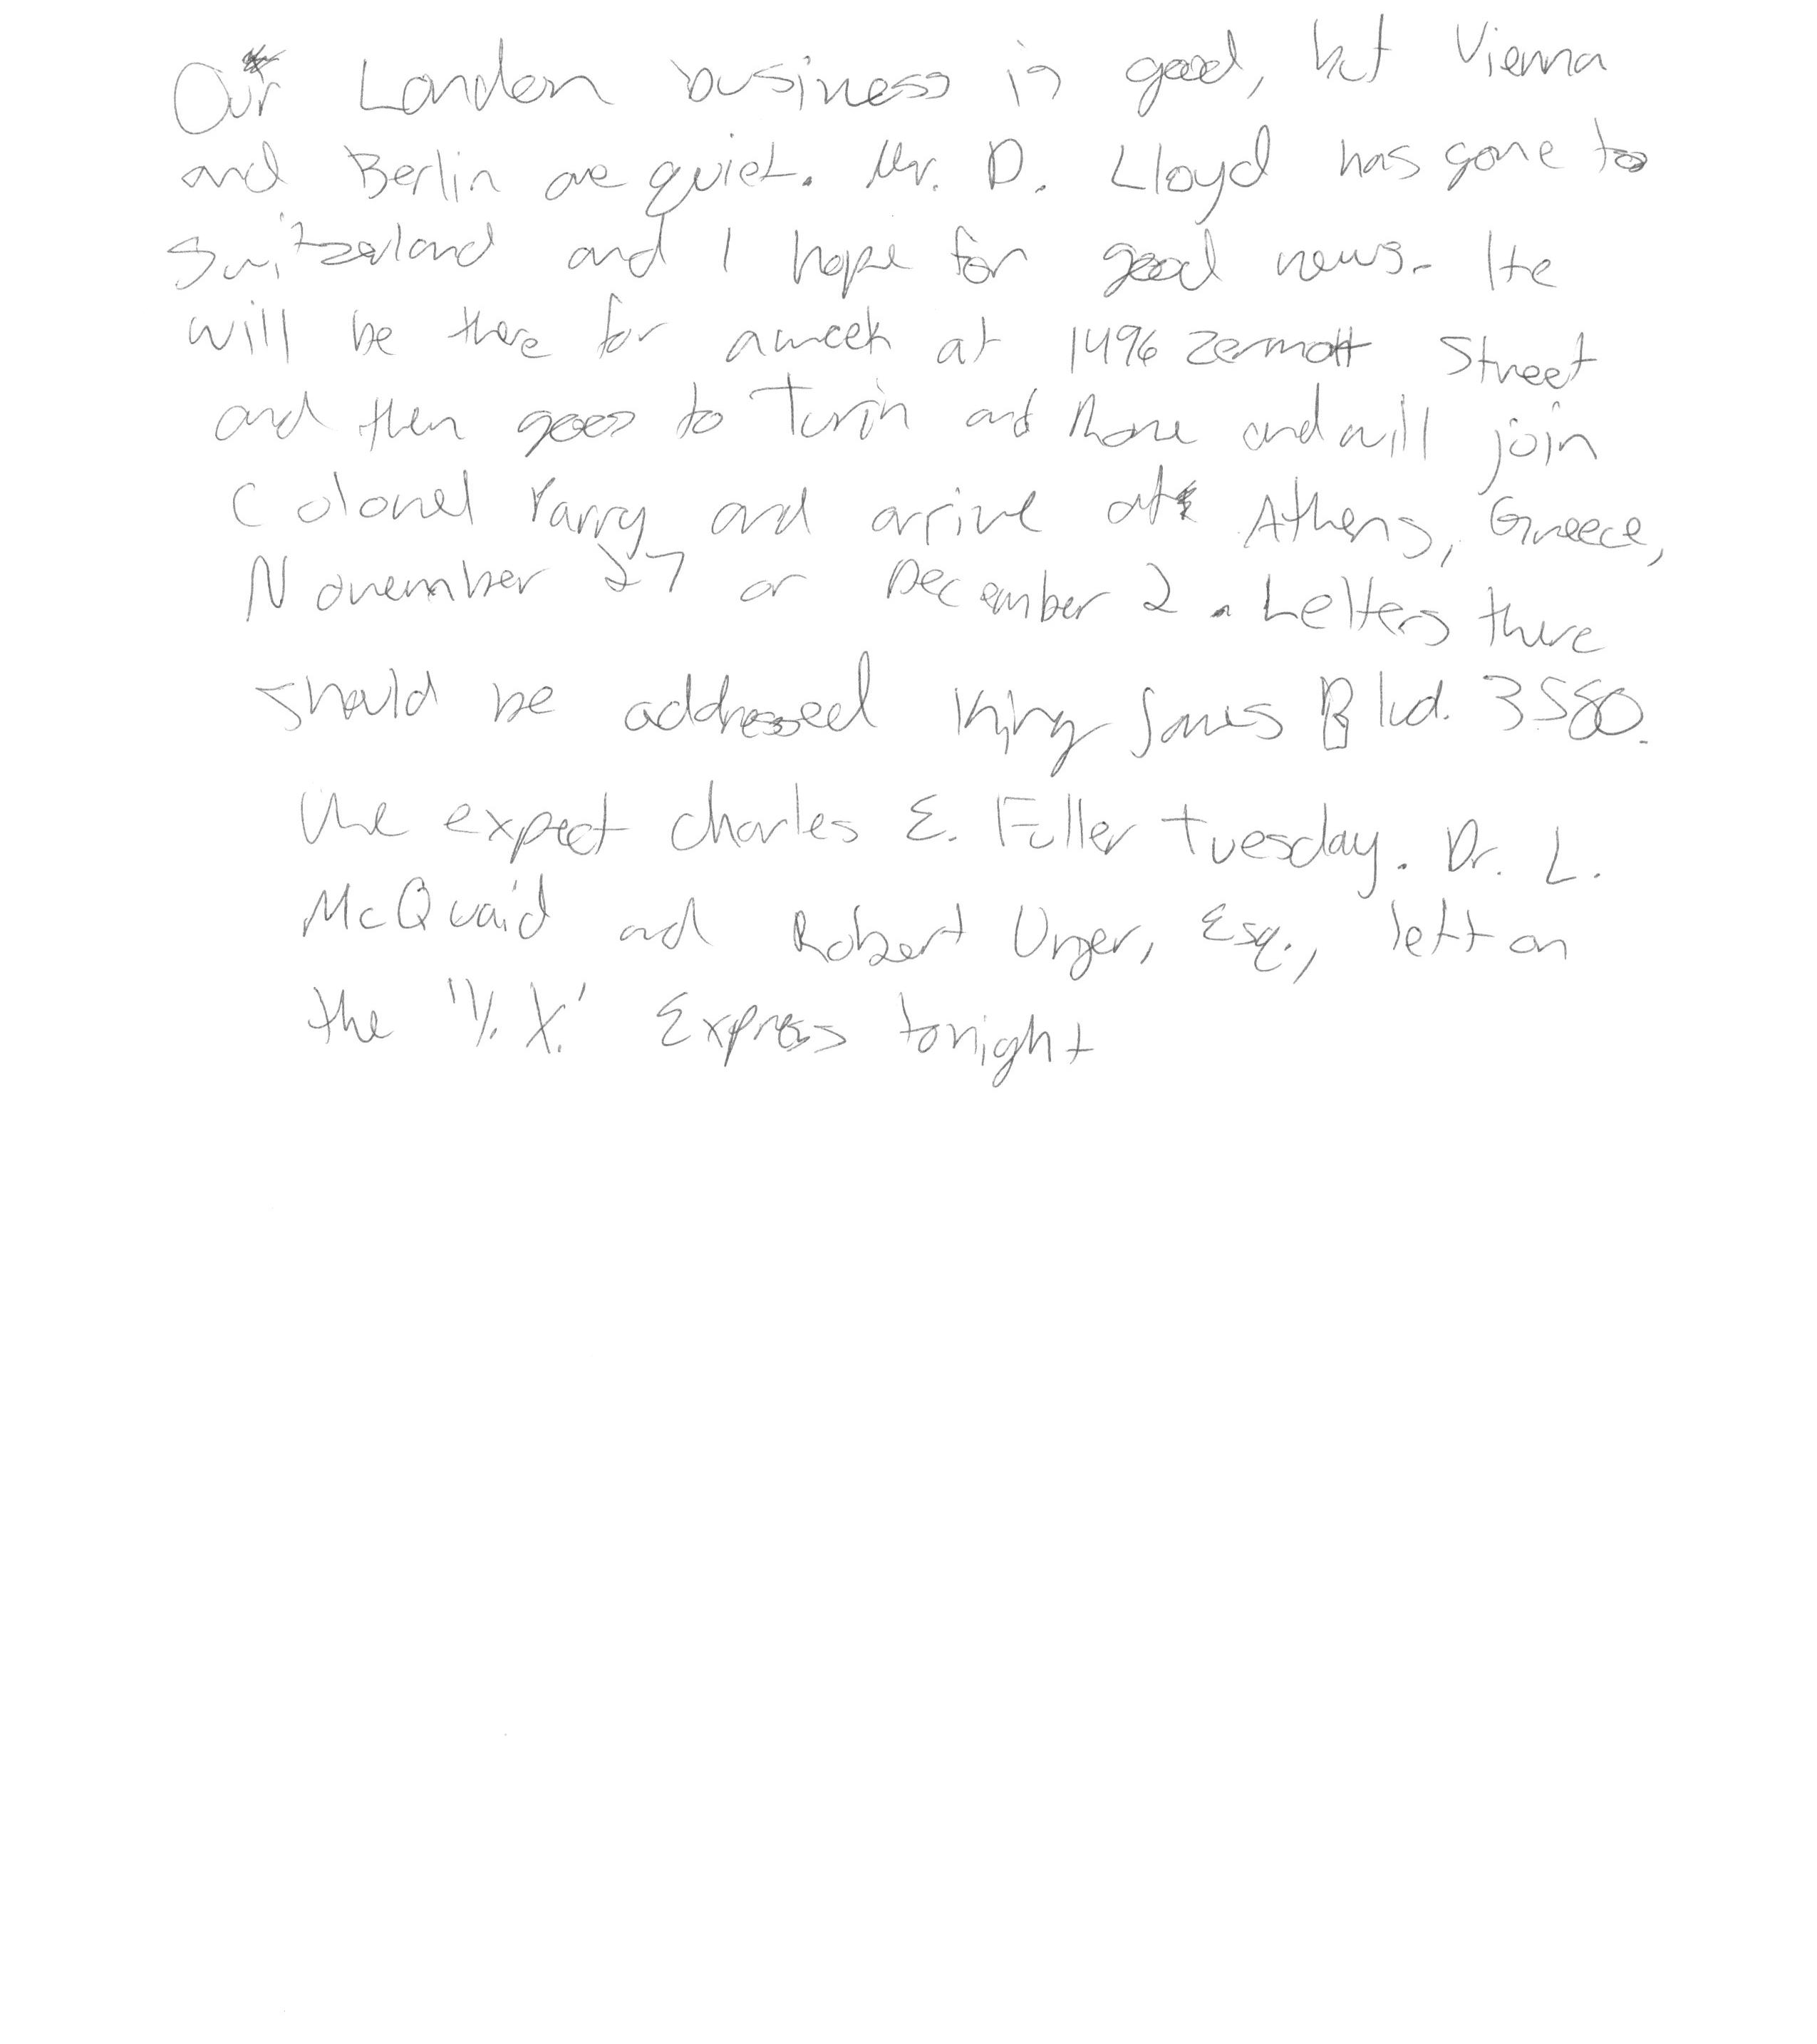 Our London business is good, but Vienna
and Berlin are quiet. Mr. D. Lloyd has gone to
Switzerland and I hope for good news. He
will be there for a week at 1496 Zermott Street
and then goes to Turin and Rome and will join
Colonel Parry and arrive at Athens, Greece,
November 27 or December 2. Letters there
should be addressed King James Blvd. 3580.
We expect Charles E. Fuller Tuesday. Dr. L.
McQuaid and Robert Unger, Esq., left on
the 'Y. X.' Express tonight